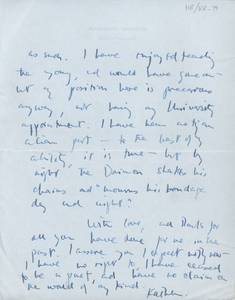 as such. I have enjoyed reading
the young, and would have gone on
but my position here is precarious
anyway, not being my University
appointment. I have been
part — to the best of my
ability, it is true — but by
night, the Daimon shakes his
chains and "mourns his bondage
day and night".
With love, and thanks for
all you have been for me in the
past. I assure you I expect nothing now –
I have no right to. I have ceased
to be a poet, and have no claim on
the world of my kind.
Kathleen